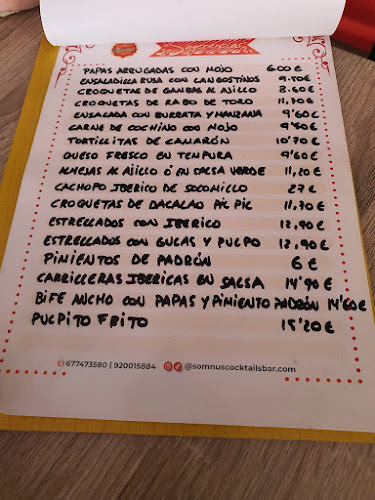 PAPAS ARRUGADAS CON MOJO 6.00 €
ENSALADILLA RUSA CON LANGOSTINOS 9.50€
CROQUETAS DE GAMBAS AL AJILLO 8.60€
CROQUETAS DE RABO DE TORO 11,70 €
ENSALADA CON BURRATA Y MANZANA 9'60€
CARNE DE COCHINO CON MOJO 9'50€
TORTILLITAS DE CAMARÓN 10'70€
QUESO FRESCO EN TEMPURA 9'60€
ALMEJAS AL AJILLO Ó EN SALSA VERDE 11,20€
CACHOPO IBERICO DE SOCOMILLO 27 €
CROQUETAS DE BACALAO PIC PIC 11,70€
ESTRELLADOS CON IBERICO 12,90€
ESTRELLADOS CON GULAS Y PULPO 12,90€
PIMIENTOS DE PADRÓN 6 €
CARRILLERAS IBERICAS EN SALSA 14'90€
BIFE ANCHO CON PAPAS Y PIMIENTO PADRÓN 14'60€
PULPITO FRITO 15'20€
677473580 | 920015884 @somnuscocktailsbar.com